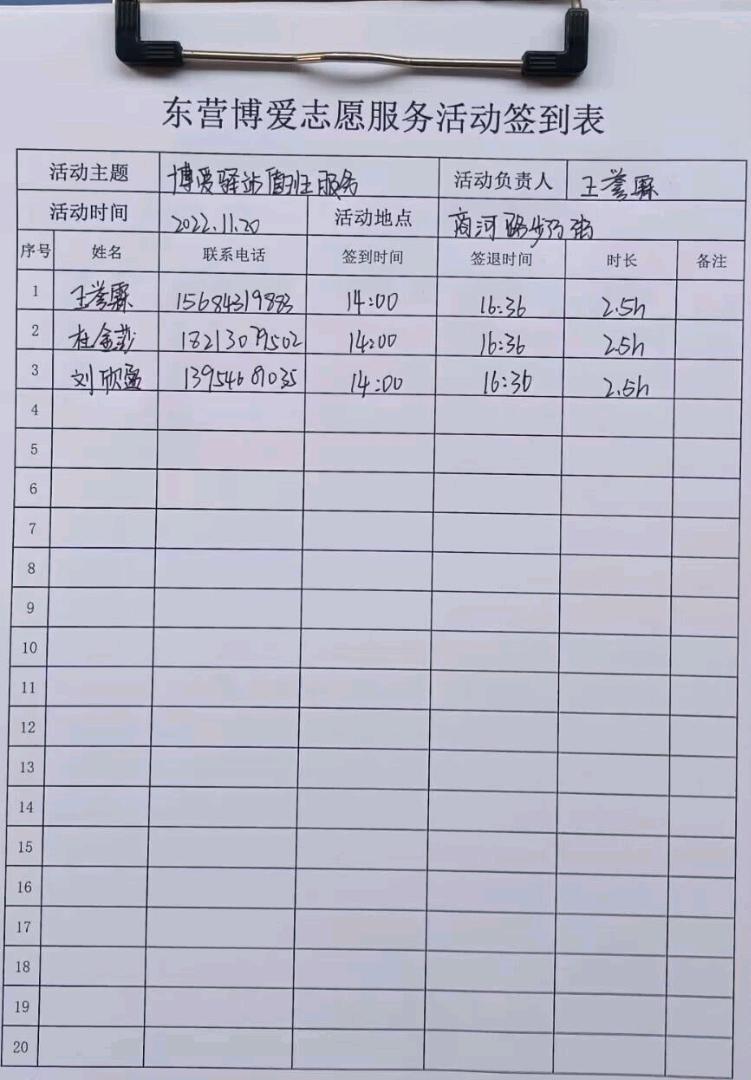 东营博爱志愿服务活动签到表
活动主题 博爱驿站值班服务 活动负责人 王誉霖
活动时间 2022.11.20 活动地点 商河路步行街
序号 姓名 联系电话 签到时间 签退时间 时长 备注
1 王誉霖 15684319883 14:00 16:36 2.5h
2 杜金 18213079502 14:00 16:36 2.5h
3 刘欣 13954681035 14:00 16:36 2.5h
4
5
6
7
8
9
10
11
12
13
14
15
16
17
18
19
20